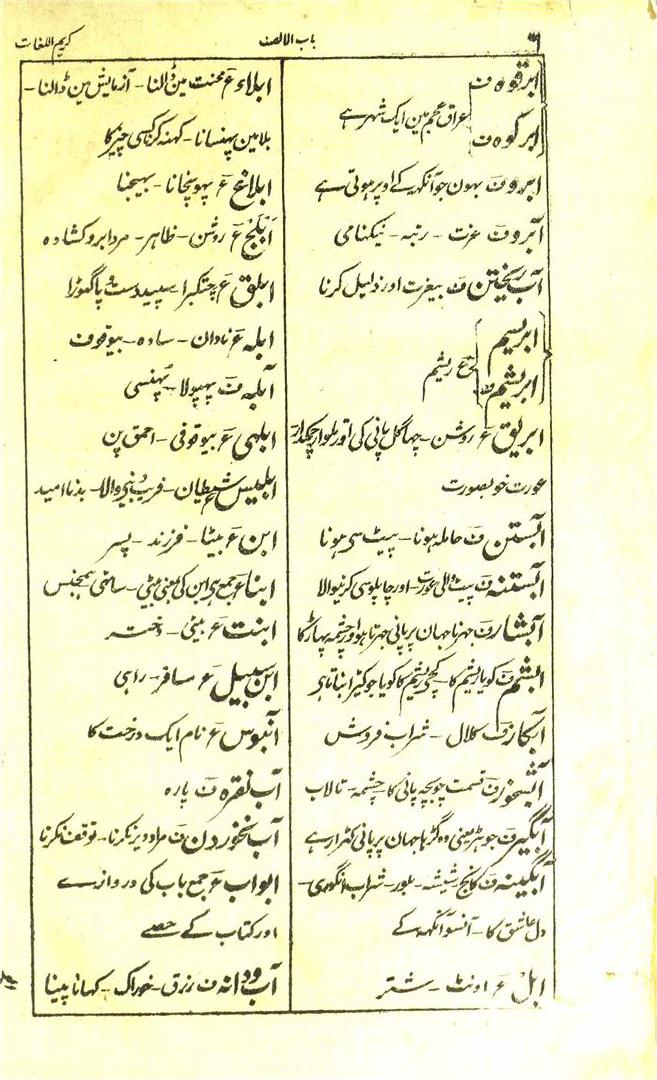 ۶
باب الالف
کریم اللغات
ابرقوہ ف
ابرکوہ ف
عراق عجم مین ایک شہر ہے
ابرو ف بہون جو آنکہہ کے اوپر ہوتی ہے
آبرو ف عزت - رتبہ - نیکنامی
آب ریختن ف بیغرت اور ذلیل کرنا
ابریسم
ابریشم ف
ع ریشم
ابریق ع روشن - چہاگل پانی کی اور تلوار چمکدار
عورت خوبصورت
آبستن ف حاملہ ہونا - پیٹ سی ہونا
آبستنہ ف پیٹ والی عورت - اور چاپلوسی کرنیوالا
آبشار ف جہرنا جہان پر پانی جہرتا ہو اور چشمہ پہاڑ کا
ابشم ف کویا ریشم کا - کچی ریشم کا کویا جو کیڑا بناتا ہی
آبکار ف کلال - شراب فروش
آبشخور ف قسمت چوبچہ پانی کا - چشمہ - تالاب
آبگیر ف جوہڑ یعنی وہ گڑہا جہان پر پانی کہڑا رہے
آبگینہ ف کانچ - شیشہ - بلور - شراب انگوری -
دل عاشق کا - آنسو آنکہہ کے
ابل ع اونٹ - شتر
ابلاء ع محنت مین ڈالنا - آزمایش مین ڈالنا -
بلا مین پہنسانا - کہنہ کرنا کسی چیز کا
ابلاغ ع پہونچانا - بہیجنا
ابلج ع روشن - ظاہر - مرد ابرو کشادہ
ابلق ع چتکبرا - سپید دست و پا گہوڑا
ابلہ ع نادان - سادہ - بیوقوف
آبلہ ف پہپولا - پہنسی
ابلہی ع بیوقوفی - احمق پن
ابلیس ع شیطان - فریب دینیوالا - بد نا امید
ابن ع بیٹا - فرزند - پسر
ابناء ع جمع ہی ابن کی بمعنی بیٹی - ساتھی ہمجنس
ابنت ع بیٹی - دختر
ابن سبیل ع مسافر - راہی
آبنوس ع نام ایک درخت کا
آب نقرہ ف پارہ
آب نخوردن ف مراد دیر نکرنا - توقف نکرنا
ابواب ع جمع باب کی دروازے
اور کتاب کے حصے
آب و دانہ ف رزق - خوراک - کہانا پینا